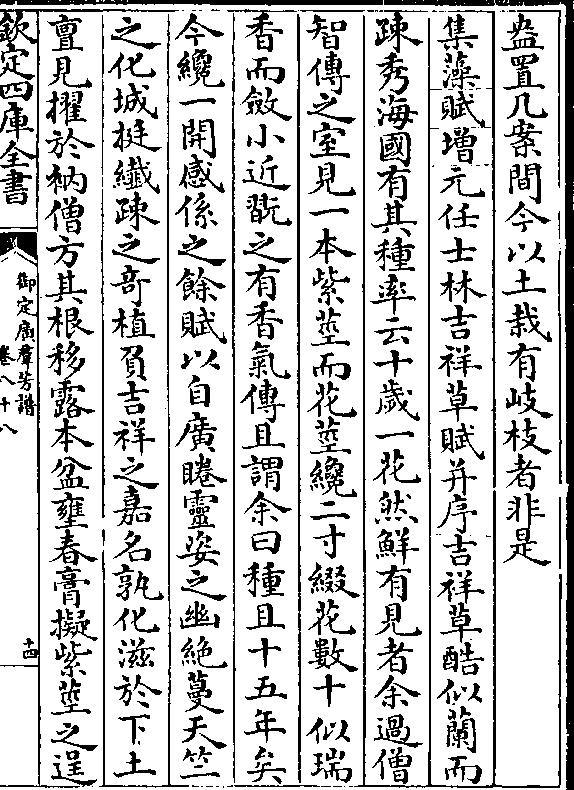 盎置几案間今以土栽有岐枝者非是
集藻賦增元任士林吉祥草賦并序吉祥草酷似蘭而
疎秀海國有其種率云十歲一花然鮮有見者余過僧
智傳之室見一本紫莖而花莖纔二寸綴花數十似瑞
香而斂小近翫之有香氣傳且謂余曰種且十五年矣
今纔一開感係之餘賦以自廣睠靈姿之幽絶蔓天竺
之化城挺纖疎之竒植負吉祥之嘉名孰化滋於下土
亶見擢於衲僧方其根移露本盆壅春膏擬紫莖之逞
欽定四庫全書
御定廣羣芳譜
卷八十八
十四